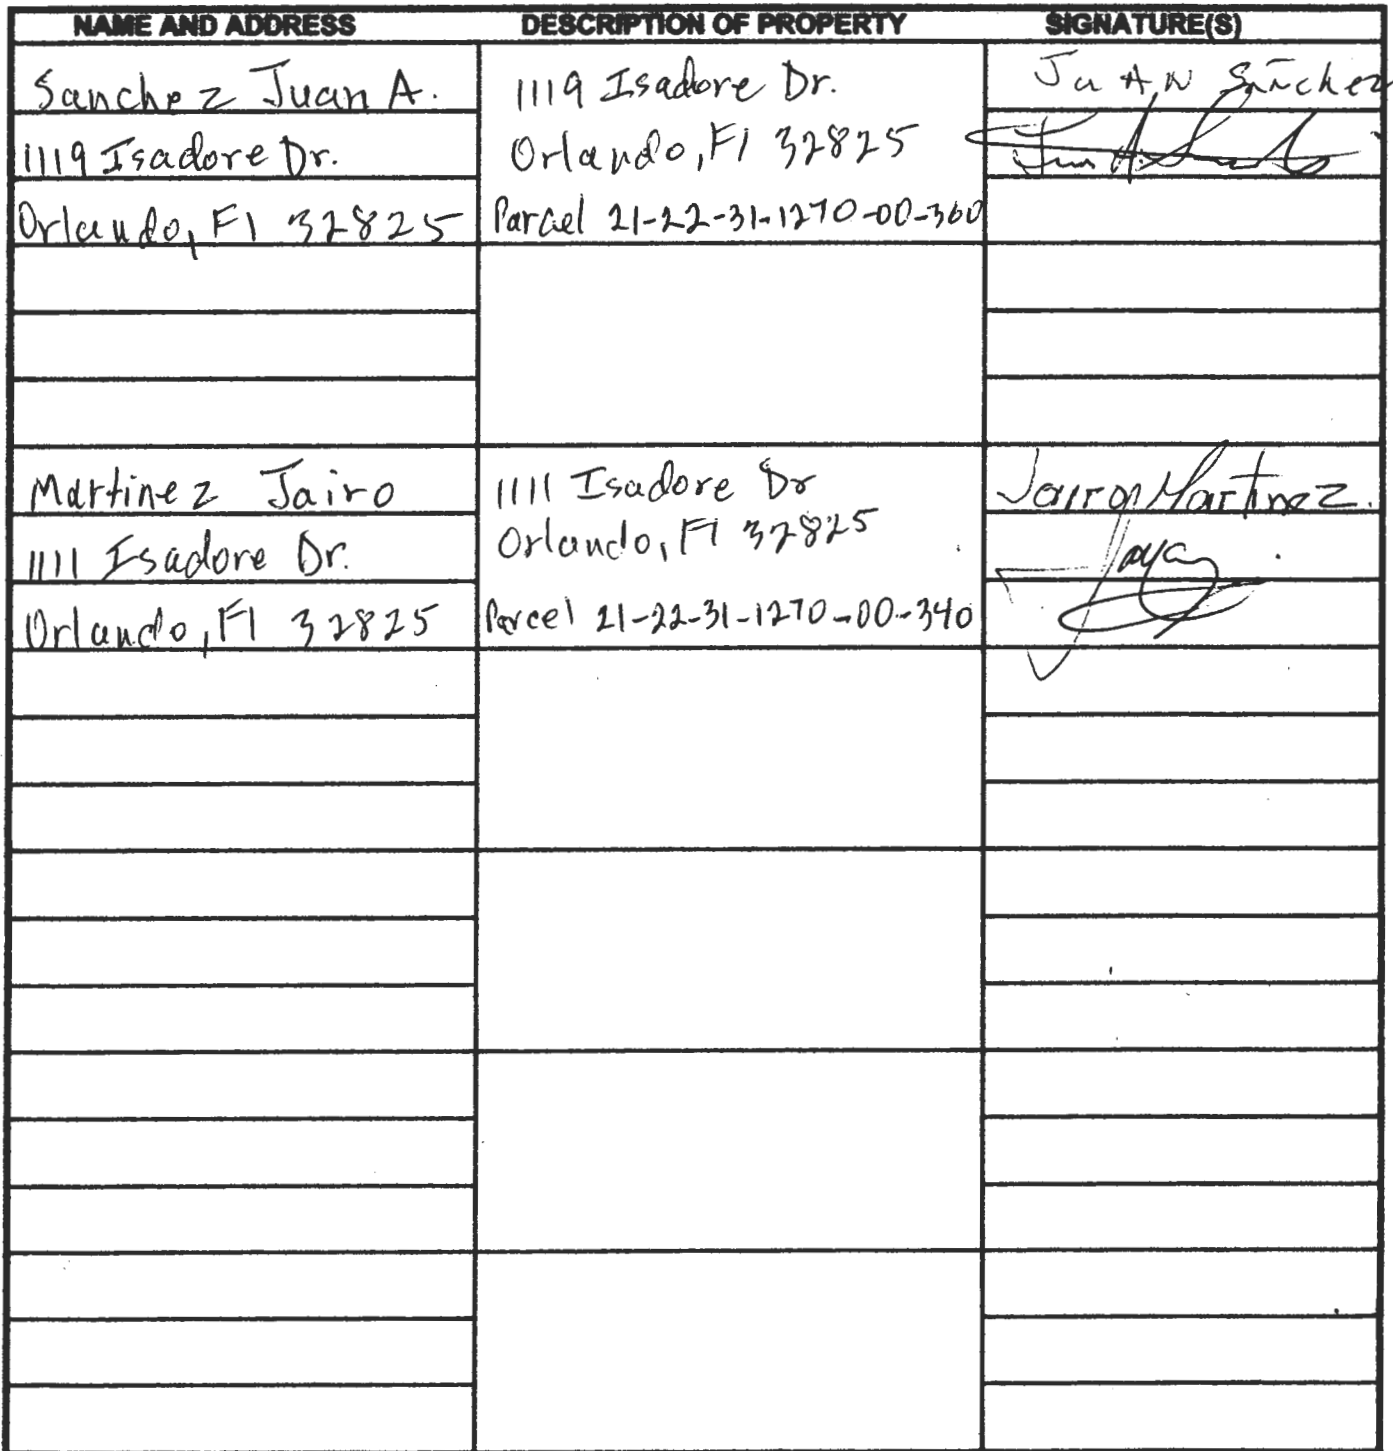 NAME AND ADDRESS
DESCRIPTION OF PROPERTY
SIGNATURE(S)
Sanchez Juan A.
1119 Isadore Dr.
Orlando, Fl 32825
1119 Isadore Dr.
Orlando, Fl 32825
Parcel 21-22-31-1270-00-360
JuAN Sanchez
Martinez Jairo
1111 Isadore Dr.
Orlando, Fl 32825
1111 Isadore Dr
Orlando, Fl 32825
Parcel 21-22-31-1270-00-340
Jairo Martinez.